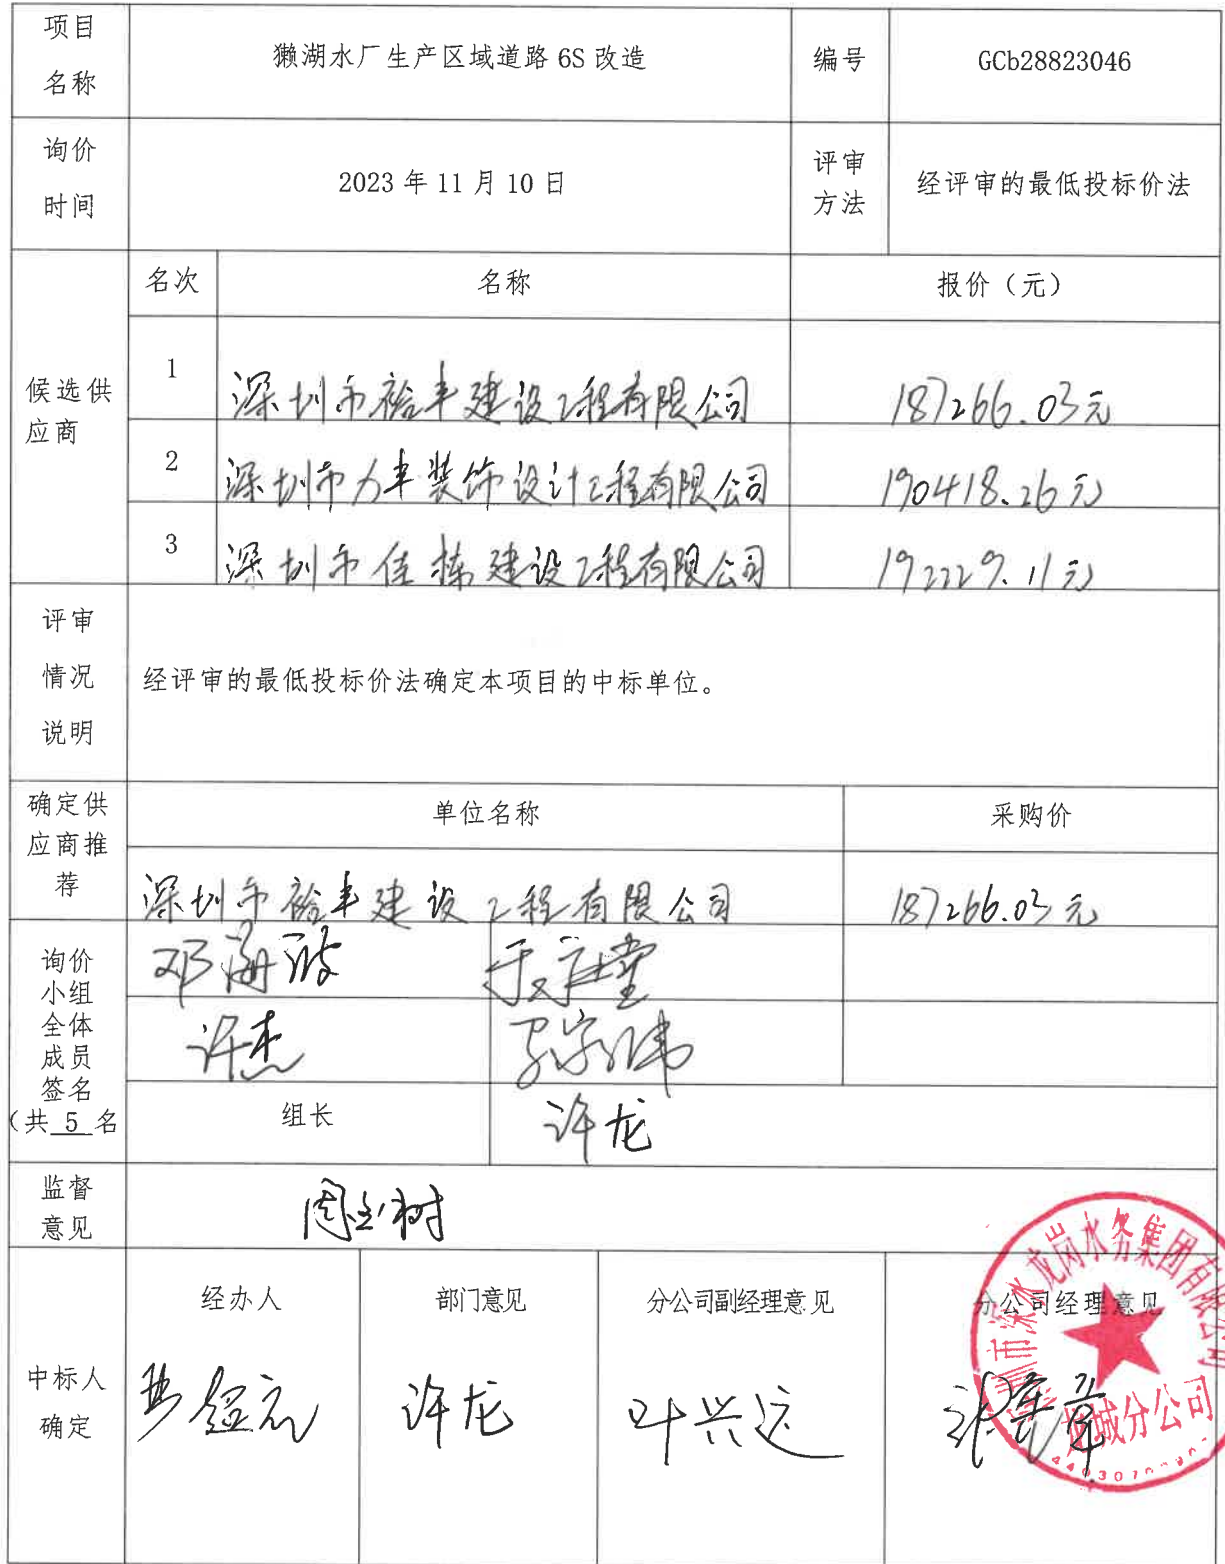 项目
名称
獭湖水厂生产区域道路 6S 改造
编号
GCb28823046
询价
时间
2023 年 11 月 10 日
评审
方法
经评审的最低投标价法
候选供
应商
名次
名称
报价（元）
1
深圳市裕丰建设工程有限公司
187266.03元
2
深圳市力丰装饰设计工程有限公司
190418.26元
3
深圳市佳栋建设工程有限公司
192229.11元
评审
情况
说明
经评审的最低投标价法确定本项目的中标单位。
确定供
应商推
荐
单位名称
采购价
深圳市裕丰建设工程有限公司
187266.03元
询价
小组
全体
成员
签名
（共 5 名
邓海波
许杰
组长
许龙
监督
意见
中标人
确定
经办人
部门意见
分公司副经理意见
分公司经理意见
许龙
叶兴远
深圳市深水龙岗水务集团有限公司
龙城分公司